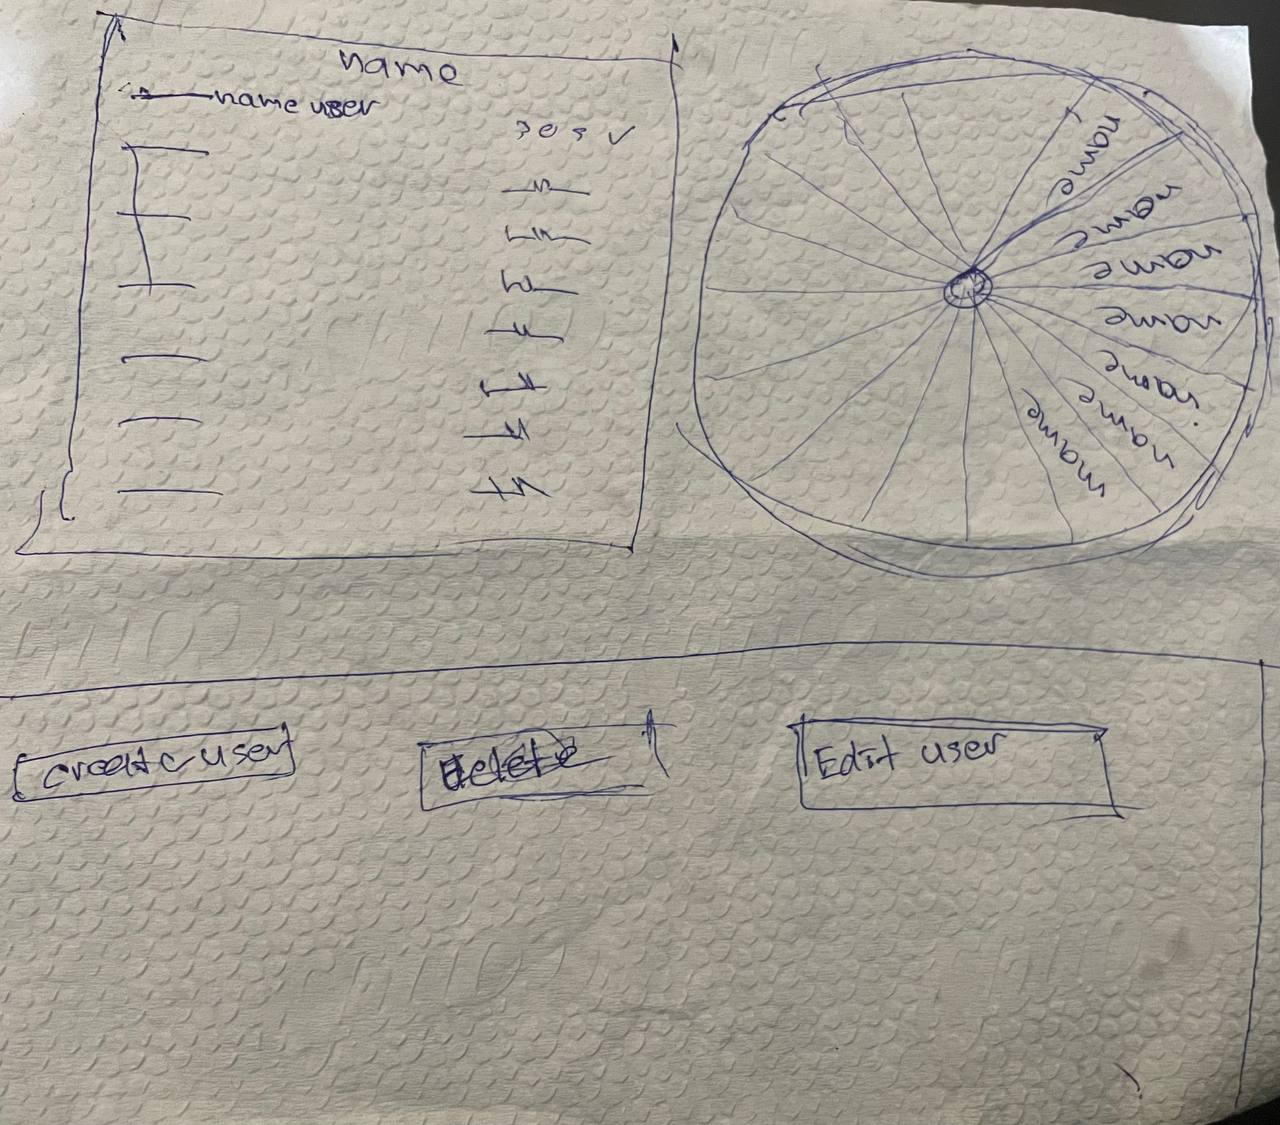 name
name user
name
name
name
name
name
name
name
create user
delete
Edit user